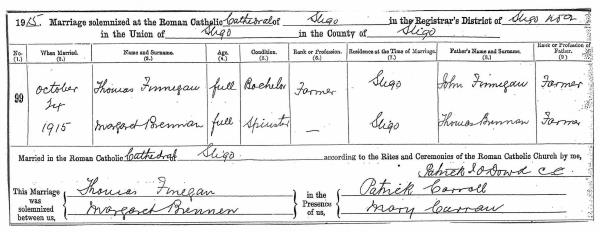 1915. Marriage solemnized at the Roman Catholic Cathedral of Sligo in the Registrar's District of Sligo No 2
in the Union of Sligo in the County of Sligo
No. When Married. Name and Surname. Age. Condition. Rank or Profession. Residence at the Time of Marriage. Father's Name and Surname. Rank or Profession of Father.
(1.) (2.) (3.) (4.) (5.) (6.) (7.) (8.) (9.)
99 October Thomas Finnegan full Bachelor Farmer Sligo John Finnegan Farmer
1915 Margaret Brennan full Spinster — Sligo Thomas Brennan Farmer
Married in the Roman Catholic Cathedral Sligo according to the Rites and Ceremonies of the Roman Catholic Church by me,
Patrick J O'Dowd CC
This Marriage was solemnized between us, Thomas Finegan in the Presence of us, Patrick Carroll
Margaret Brennen Mary Curran